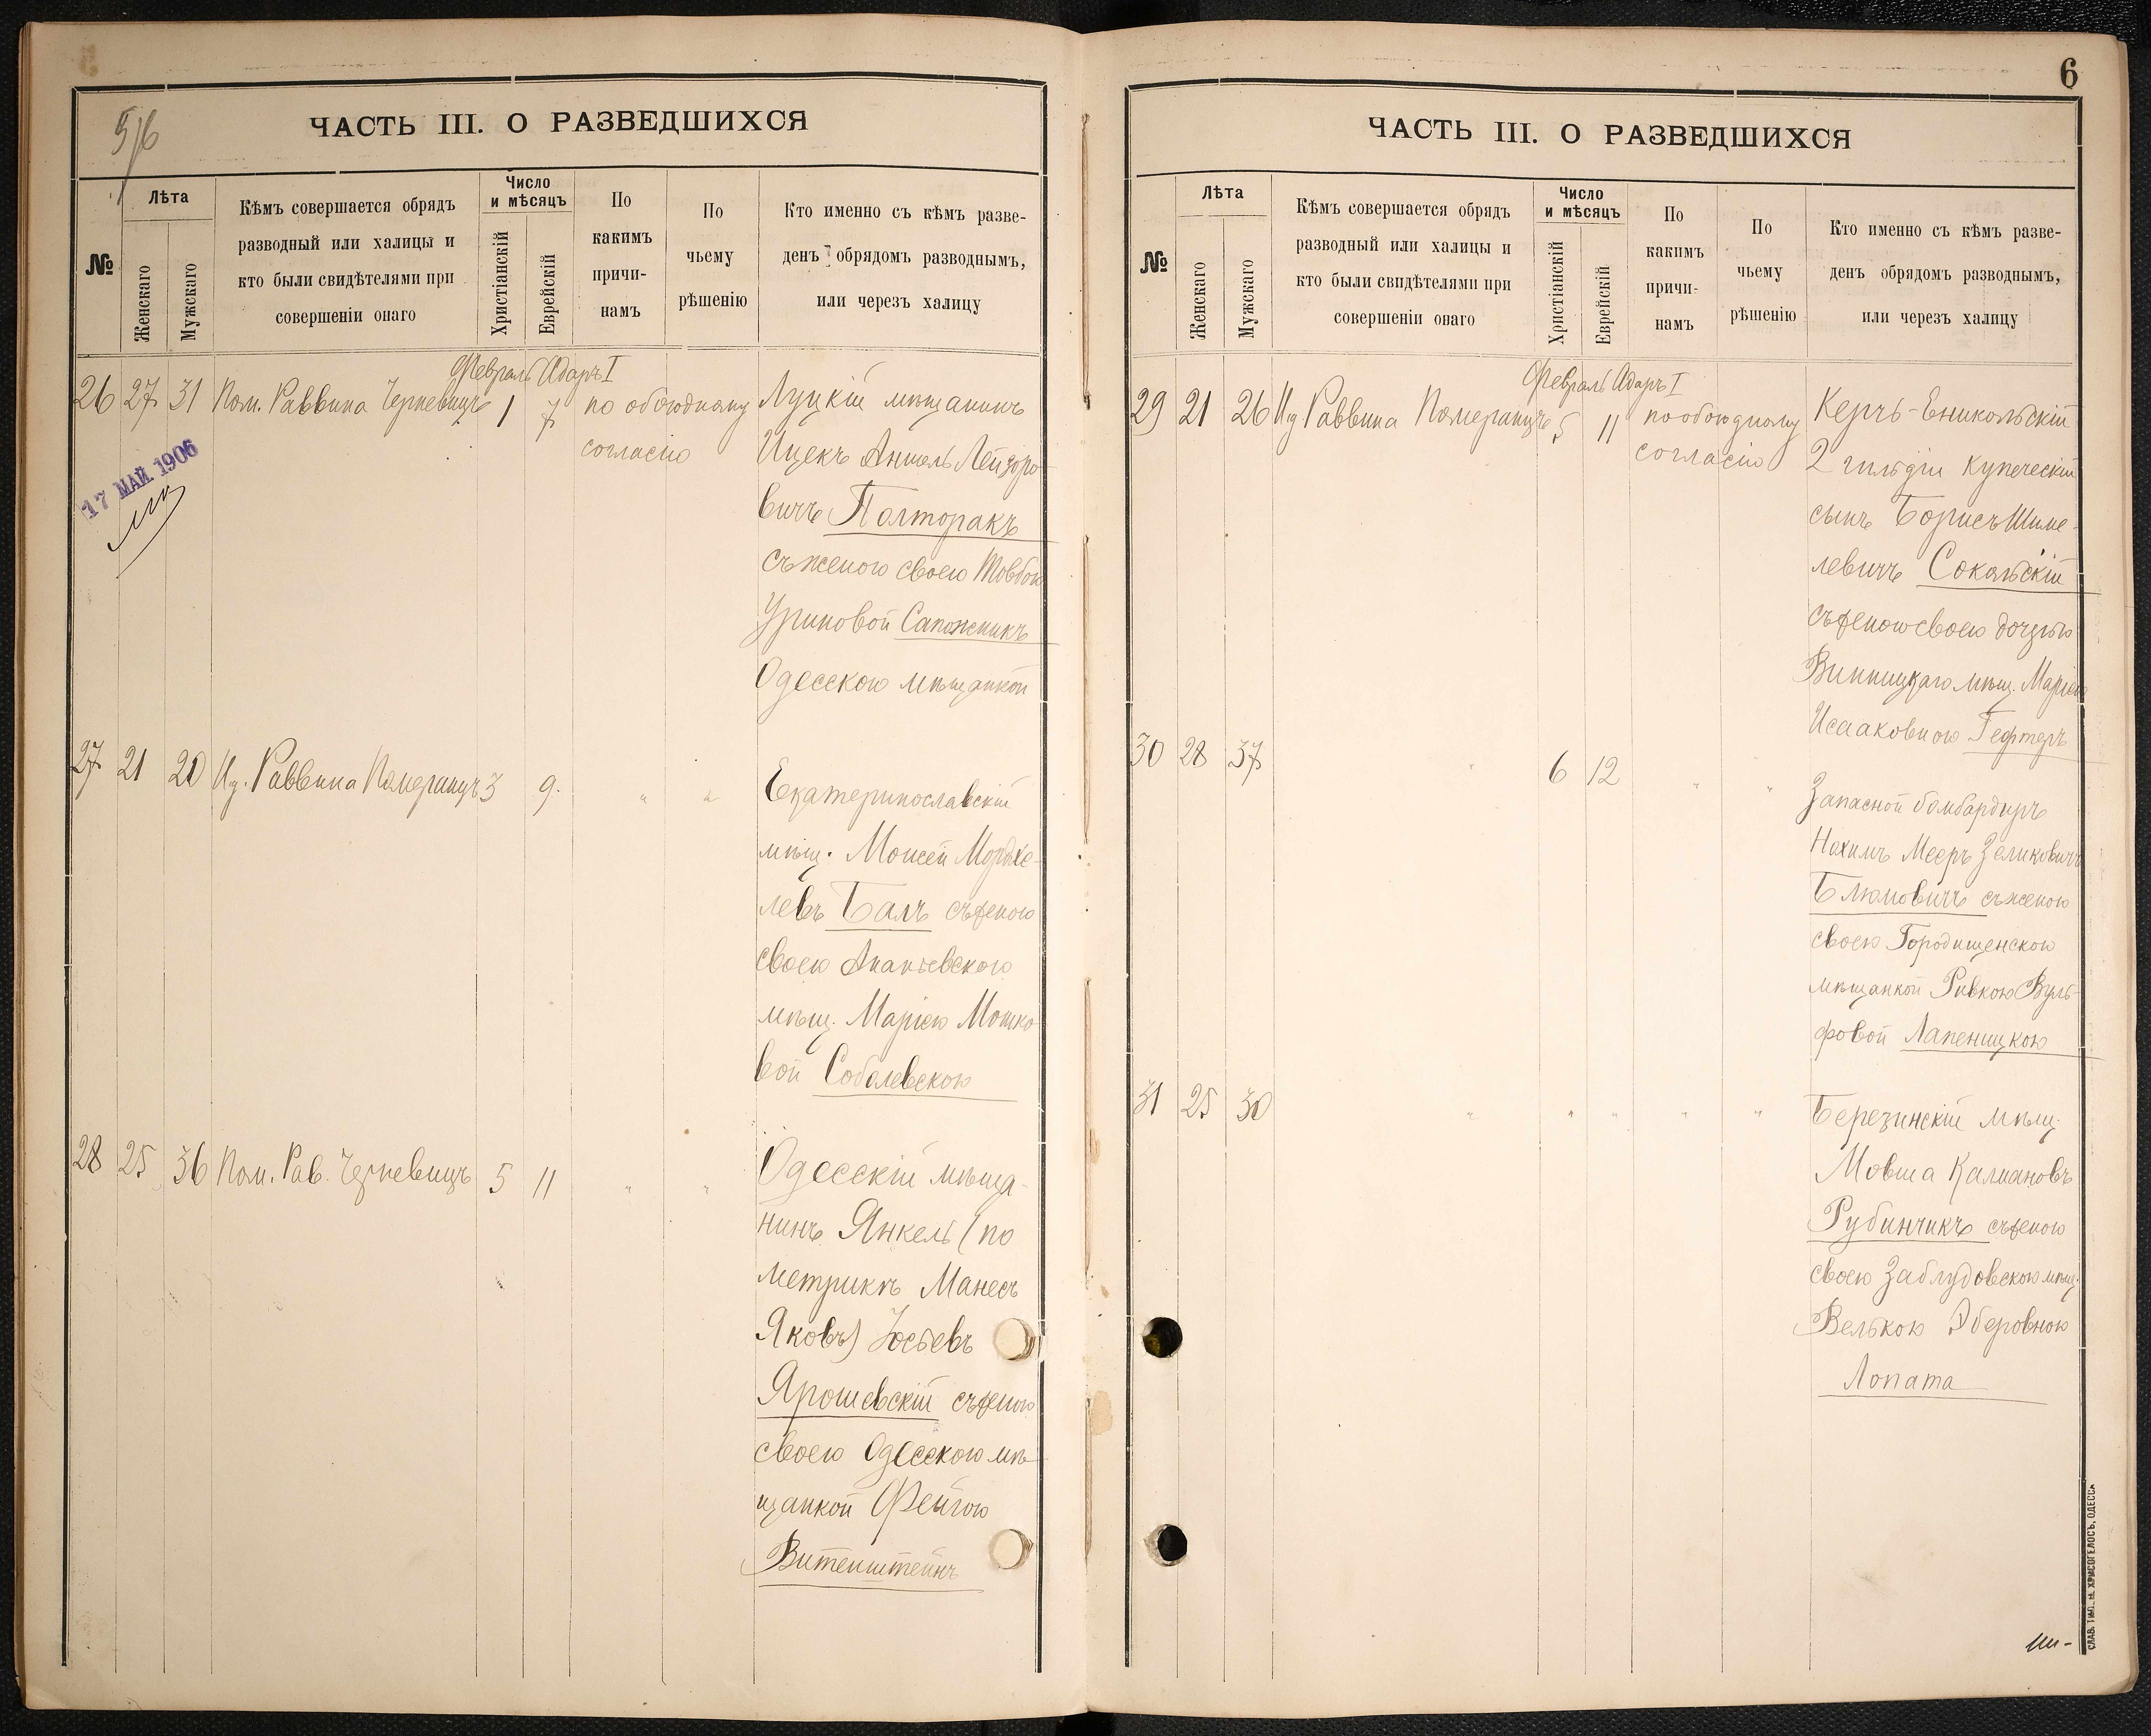 5/6
ЧАСТЬ III. О РАЗВЕДШИХСЯ
№
Лѣта
Женскаго
Мужскаго
Кѣмъ совершается обрядъ
разводный или халицы и
кто были свидѣтелями при
совершеніи онаго
Число
и мѣсяцъ
Христіанскій
Еврейскій
По
какимъ
причи-
намъ
По
чьему
рѣшенію
Кто именно съ кѣмъ разве-
денъ обрядомъ разводнымъ,
или черезъ халицу
Февраль Адаръ I
26 27 31 Пом. Раввина Черневицъ 1 7 по обоюдному
согласію
Луцкій мѣщанинъ
Ицекъ Аншель Лейзоро-
вичъ Полторакъ
съ женою своею Товбою
Уриновой Сапожникъ
Одесскою мѣщанкой
17 МАЙ 1906
27 21 20 Ид. Раввина Померанцъ 3 9. " "
Екатеринославскій
мѣщ. Моисей Мордхе-
левъ Балъ съ женою
своею Ананьевскою
мѣщ. Маріею Мошко
вой Соболевскою
28 25 36 Пом. Рав. Черневицъ 5 11 " "
Одесскій мѣща-
нинъ Янкель (по
метрикѣ Манесъ
Яковъ) Іосьевъ
Ярошевскій съ женою
своею Одесскою мѣ-
щанкой Фейгою
Витенштейнъ
6
ЧАСТЬ III. О РАЗВЕДШИХСЯ
№
Лѣта
Женскаго
Мужскаго
Кѣмъ совершается обрядъ
разводный или халицы и
кто были свидѣтелями при
совершеніи онаго
Число
и мѣсяцъ
Христіанскій
Еврейскій
По
какимъ
причи-
намъ
По
чьему
рѣшенію
Кто именно съ кѣмъ разве-
денъ обрядомъ разводнымъ,
или черезъ халицу
Февраль Адаръ I
29 21 26 Ид Раввина Померанцъ 5 11 по обоюдному
согласію
Керчь-Еникольскій
2 гильдіи купеческій
сынъ Борисъ Шиме-
левичъ Сокальскій
съ женою своею дочерью
Винницкаго мѣщ. Маріею
Исааковною Гефтеръ
30 28 37 " 6 12 " "
Запасной бомбардиръ
Нахимъ Мееръ Зеликовичъ
Блюмовичъ съ женою
своею Городищенскою
мѣщанкой Ривкою Вуль-
фовой Лапеницкою
31 25 30 " " " " "
Березинскій мѣщ.
Мовша Калмановъ
Рубинчикъ съ женою
своею Заблудовскою мѣщ.
Велькою Эберовною
Лопата
СЛАВ. ТИП. Н. ХРИСОГЕЛОСЪ, ОДЕССА